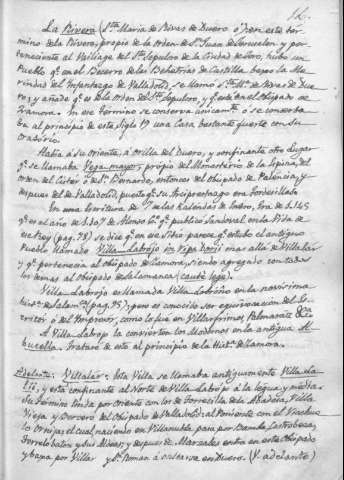 La Rivera (Sta. Maria de Rivas de Duero) ó Jen este ter-
mino de la Rivera, propio de la orden de Sn. Juan de Jerusalen y per-
teneciente al Vailiage del Sto. Sepulcro de la Ciudad de Toro, hubo un
Pueblo qe. en el Becerro de las Behetrias de Castilla bajo la Me-
rindad del Infantazgo de Valladolid, se llamo Sta. Ma. de Rivas de Due-
ro, y añade qe. es de la Orden del Sto. Sepulcro, y qe. es en el Obispado de
Zamora. En ese Termino se conserva unicamte. ó se conserva-
ba al principio de este Siglo 19 una Casa bastante fuerte con su
Oratorio.
Había á su Oriente, á orilla del Duero, y confinante otro lugar
qe. se llamaba Vega-mayor, propio del Monasterio de la Espina, del
orden del Cister ó de Sn. Bernardo, entonces del Obispado de Palencia, y
despues del de Valladolid, puesto qe. su Arciprestazgo era Tordesillas
En una Escritura de 7 de las Kalendas de Enero, Era de 1145
qe. es el año de 6 de Alonso 6º. qe. publico Sandoval en la Vida de
ese Rey (pag. 95) se dice qe. en ese Sitio parece qe. estubo el antiguo
Pueblo llamado Villa-Labrojo in ripa Dorii mas alla de Villalar
y qe. pertenecia al Obispado de Zamora, siendo agregado con todos
los demas al Obispado de Salamanca (caute lege).
Villa-Labrojo es llamada Villa-Labriño en la novisima
histª. de Salamca. (pag. 95); pero es conocido ser equivocacion del Es-
critor ó del Impresor, como lo fue en Villarfrimos, Palmarate &a
A Villa-Labrojo la convierten los Modernos en la antigua Al-
bucella. Trataré de esto al principio de la Histª. de Zamora.
Adelante: Villalar: Esta Villa se llamaba antiguamente Villa-La-
lii, y esta confinante al Norte de Villa-Labrojo á la legua y media.
Su Termino linda por Oriente con los de Torrecilla de la Abadesa, Villa
Vieja y Bercero del Obispado de Valladolid: al Poniente con el Riachue-
lo Ornija; el cual naciendo en Villanubla pasa por Bamba, Castrodeza,
Torrelobaton y sus Aldeas; y despues de Marzales entra en este Obispado
y baja por Villar y Sn. Roman á entrarse en Duero. (V. adelante)